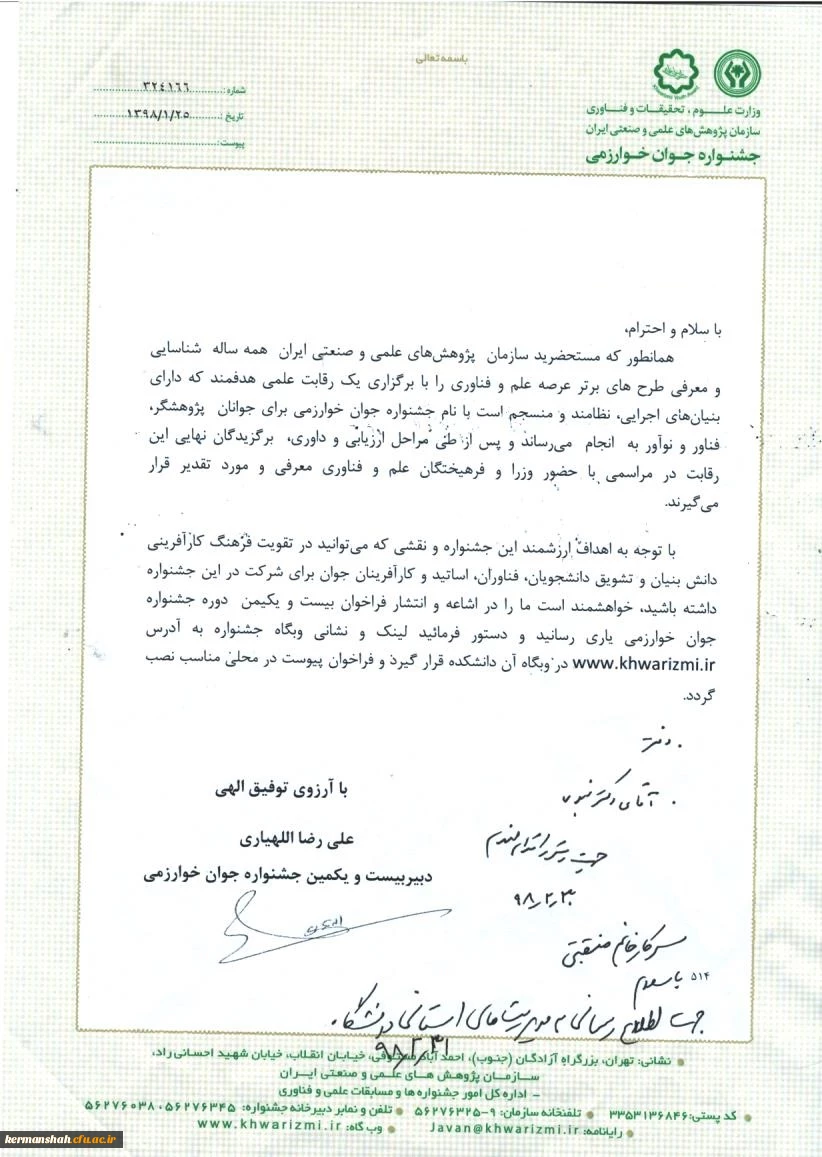 باسمه تعالی
وزارت علـــوم، تحقیقـات و فنـاوری
سازمان پژوهش‌های علمی و صنعتی ایران
جشنـواره جـوان خـوارزمی
شماره: ۳۲٤۱٦٦
تاریخ: ۱۳۹۸/۱/۲۵
پیوست:
با سلام و احترام،
همانطور که مستحضرید سازمان پژوهش‌های علمی و صنعتی ایران همه ساله شناسایی
و معرفی طرح های برتر عرصه علم و فناوری را با برگزاری یک رقابت علمی هدفمند که دارای
بنیان‌های اجرایی، نظامند و منسجم است با نام جشنواره جوان خوارزمی برای جوانان پژوهشگر،
فناور و نوآور به انجام می‌رساند و پس از طی مراحل ارزیابی و داوری، برگزیدگان نهایی این
رقابت در مراسمی با حضور وزرا و فرهیختگان علم و فناوری معرفی و مورد تقدیر قرار
می‌گیرند.
با توجه به اهداف ارزشمند این جشنواره و نقشی که می‌توانید در تقویت فرهنگ کارآفرینی
دانش بنیان و تشویق دانشجویان، فناوران، اساتید و کارآفرینان جوان برای شرکت در این جشنواره
داشته باشید، خواهشمند است ما را در اشاعه و انتشار فراخوان بیست و یکیمن دوره جشنواره
جوان خوارزمی یاری رسانید و دستور فرمائید لینک و نشانی وبگاه جشنواره به آدرس
www.khwarizmi.ir در وبگاه آن دانشکده قرار گیرد و فراخوان پیوست در محلی مناسب نصب
گردد.
با آرزوی توفیق الهی
علی رضا اللهیاری
دبیربیست و یکمین جشنواره جوان خوارزمی
آقای دکتر
۹۸/۲/۳۰
سرکار خانم منقبتی
۵۱۴ با سلام
جهت اطلاع رسانی به مدیریت های استانی دانشگاه.
۹۸/۲/۳۱
نشانی: تهران، بزرگراه آزادگان (جنوب)، احمد آباد مستوفی، خیـابان انقلاب، خیابان شهید احسانی راد،
سـازمـان پژوهش هـای علـمی و صنعتی ایـران
– اداره کل امور جشنواره ها و مسابقات علمی و فناوری
کد پستی: ۳۳۵۳۱۳۶۸۴۶ تلفنخانه سازمان: ۹-۵۶۲۷۶۳۲۵ تلفن و نمابر دبیرخانه جشنواره: ۵۶۲۷۶۳۴۵-۵۶۲۷۶۰۳۸
رایانامه: Javan@khwarizmi.ir وب گاه: www.khwarizmi.ir
kermanshah.cfu.ac.ir